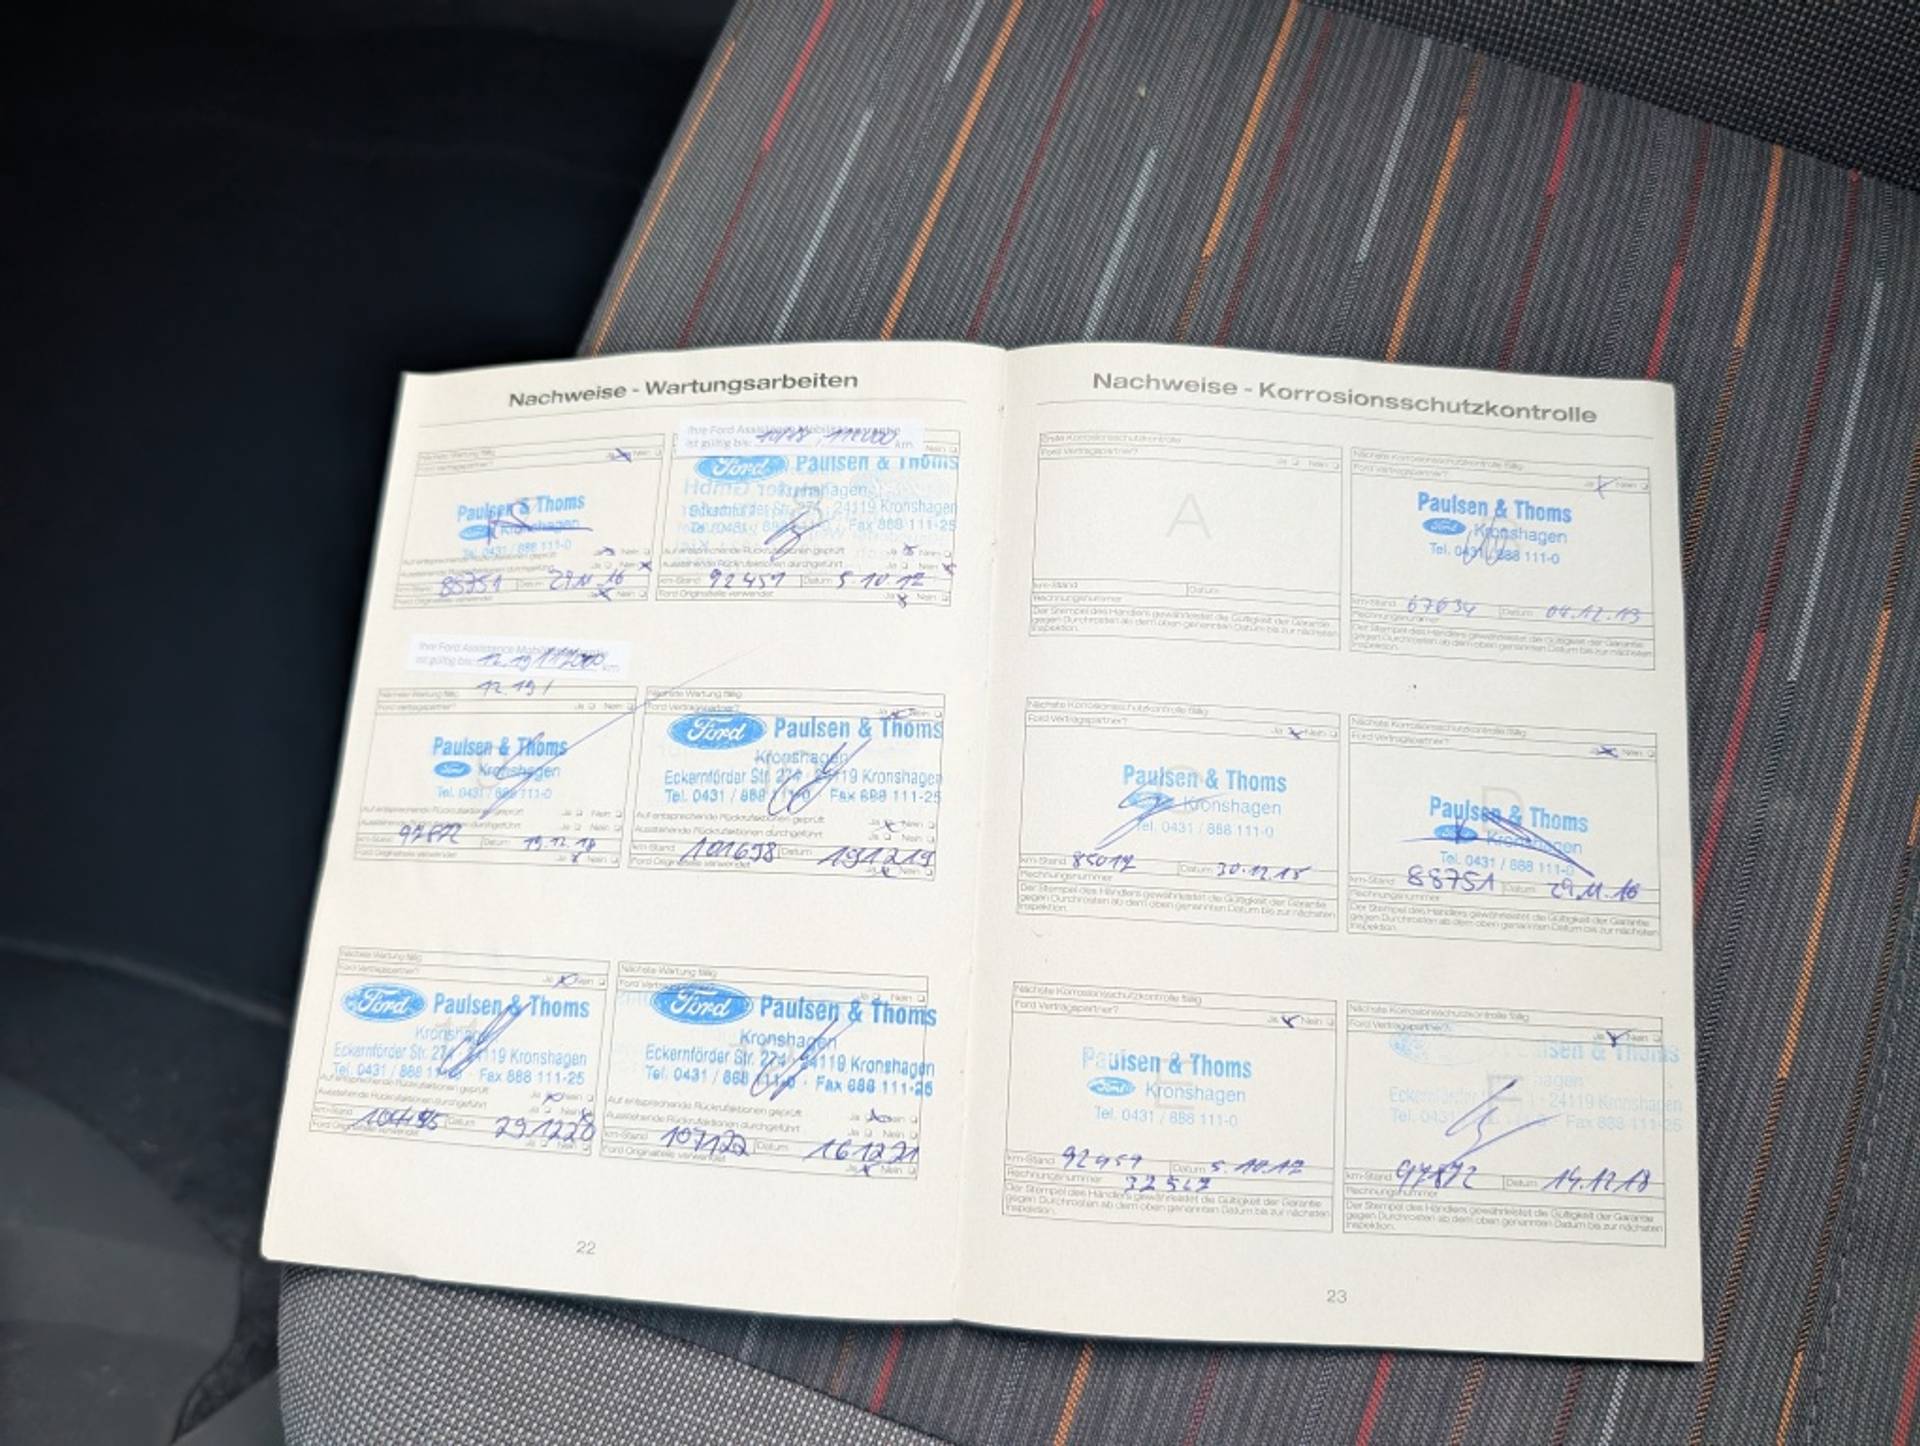 Nachweise - Wartungsarbeiten
Nächste Wartung fällig
Ford Vertragspartner? Ja Nein
Paulsen & Thoms
Ford Kronshagen
Tel. 0431 / 888 111-0
Ja Nein
Ausstehende Rückrufaktionen durchgeführt Ja Nein
km-Stand 88751 Datum 29.11.16
Ford Originalteile verwendet Ja Nein
Ihre Ford Assistance Mobilitätsgarantie
ist gültig bis: 10/18 / 112000 km
Nein
Ford Paulsen & Thoms
Kronshagen
Eckernförder Str. 274 · 24119 Kronshagen
Tel. 0431 / 888 Fax 888 111-25
Auf entsprechende Rückrufaktionen geprüft Ja Nein
Ausstehende Rückrufaktionen durchgeführt Ja Nein
km-Stand 92451 Datum 5.10.17
Ford Originalteile verwendet Ja Nein
Ihre Ford Assistance Mobilitätsgarantie
ist gültig bis: 12.19 / 117000 km
12.19 /
Nächste Wartung fällig
Ford Vertragspartner? Ja Nein
Paulsen & Thoms
Ford Kronshagen
Tel. 0431 / 888 111-0
Auf entsprechende Rückrufaktionen geprüft Ja Nein
Ausstehende Rückrufaktionen durchgeführt Ja Nein
km-Stand 97872 Datum 19.12.18
Ford Originalteile verwendet Ja Nein
Nächste Wartung fällig
Ford Vertragspartner? Ja Nein
Ford Paulsen & Thoms
Kronshagen
Eckernförder Str. 274 · 24119 Kronshagen
Tel. 0431 / 888 111-0 · Fax 888 111-25
Auf entsprechende Rückrufaktionen geprüft Ja Nein
Ausstehende Rückrufaktionen durchgeführt Ja Nein
km-Stand 101698 Datum 191219
Ford Originalteile verwendet Ja Nein
Nächste Wartung fällig
Ford Vertragspartner? Ja Nein
Ford Paulsen & Thoms
Kronshagen
Eckernförder Str. 274 · 24119 Kronshagen
Tel. 0431 / 888 Fax 888 111-25
Auf entsprechende Rückrufaktionen geprüft Ja Nein
Ausstehende Rückrufaktionen durchgeführt Ja Nein
km-Stand Datum 291220
Ford Originalteile verwendet Ja Nein
Nächste Wartung fällig
Ford Vertragspartner? Ja Nein
Ford Paulsen & Thoms
Kronshagen
Eckernförder Str. 274 · 24119 Kronshagen
Tel. 0431 / 888 111-0 · Fax 888 111-25
Auf entsprechende Rückrufaktionen geprüft Ja Nein
Ausstehende Rückrufaktionen durchgeführt Ja Nein
km-Stand 107122 Datum 161221
Ford Originalteile verwendet Ja Nein
22
Nachweise - Korrosionsschutzkontrolle
Erste Korrosionsschutzkontrolle
Ford Vertragspartner? Ja Nein
A
km-Stand Datum
Rechnungsnummer
Der Stempel des Händlers gewährleistet die Gültigkeit der Garantie
gegen Durchrosten ab dem oben genannten Datum bis zur nächsten
Inspektion.
Nächste Korrosionsschutzkontrolle fällig
Ford Vertragspartner? Ja Nein
Paulsen & Thoms
Ford Kronshagen
Tel. 0431 / 888 111-0
km-Stand 67634 Datum 04.12.13
Rechnungsnummer
Der Stempel des Händlers gewährleistet die Gültigkeit der Garantie
gegen Durchrosten ab dem oben genannten Datum bis zur nächsten
Inspektion.
Nächste Korrosionsschutzkontrolle fällig
Ford Vertragspartner? Ja Nein
Paulsen & Thoms
Kronshagen
Tel. 0431 / 888 111-0
km-Stand 85017 Datum 30.12.15
Rechnungsnummer
Der Stempel des Händlers gewährleistet die Gültigkeit der Garantie
gegen Durchrosten ab dem oben genannten Datum bis zur nächsten
Inspektion.
Nächste Korrosionsschutzkontrolle fällig
Ford Vertragspartner? Ja Nein
D
Paulsen & Thoms
Ford Kronshagen
Tel. 0431 / 888 111-0
km-Stand 88751 Datum 29.11.16
Rechnungsnummer
Der Stempel des Händlers gewährleistet die Gültigkeit der Garantie
gegen Durchrosten ab dem oben genannten Datum bis zur nächsten
Inspektion.
Nächste Korrosionsschutzkontrolle fällig
Ford Vertragspartner? Ja Nein
E
Paulsen & Thoms
Ford Kronshagen
Tel. 0431 / 888 111-0
km-Stand 92451 Datum 5.10.17
Rechnungsnummer 32567
Der Stempel des Händlers gewährleistet die Gültigkeit der Garantie
gegen Durchrosten ab dem oben genannten Datum bis zur nächsten
Inspektion.
Nächste Korrosionsschutzkontrolle fällig
Ford Vertragspartner? Ja Nein
F
Paulsen & Thoms
Kronshagen
Eckernförder 24119 Kronshagen
Tel. 0431 Fax 888 111-25
km-Stand 97872 Datum 14.12.18
Rechnungsnummer
Der Stempel des Händlers gewährleistet die Gültigkeit der Garantie
gegen Durchrosten ab dem oben genannten Datum bis zur nächsten
Inspektion.
23